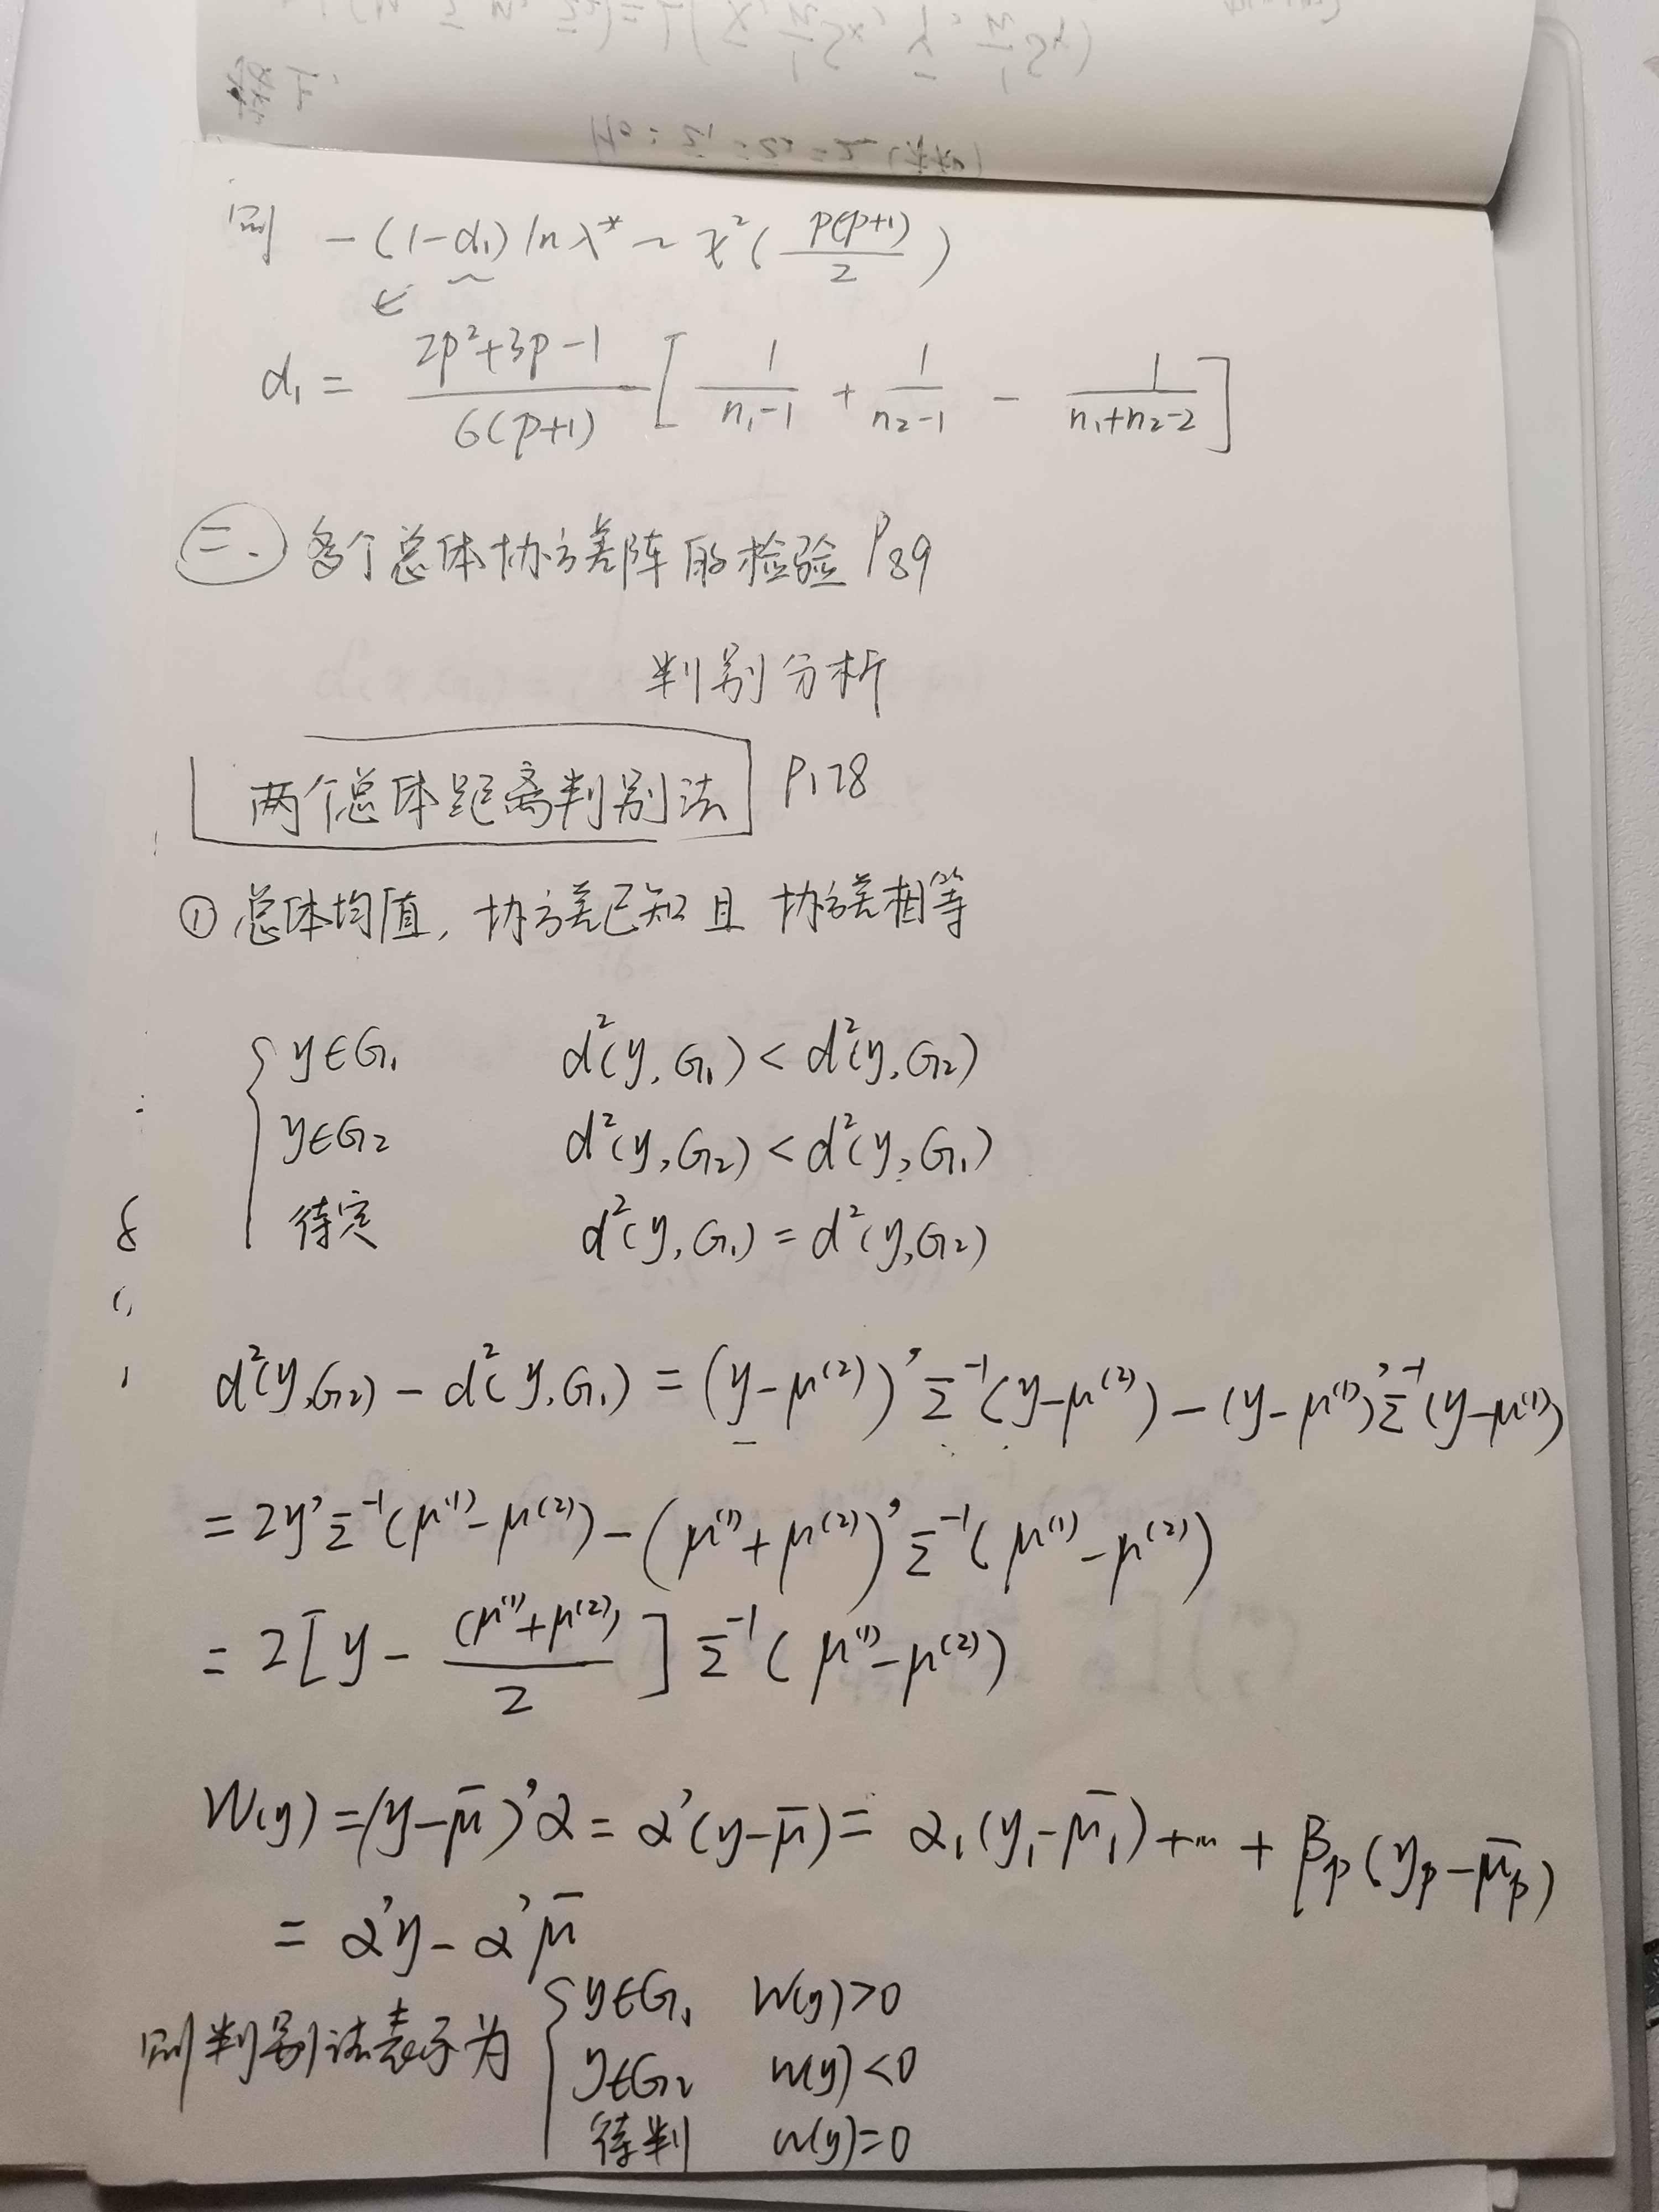 则 -(1-d₁)lnλ* ~ χ²(p(p+1)/2)
d₁ = (2p²+3p-1)/(6(p+1)) [1/(n₁-1) + 1/(n₂-1) - 1/(n₁+n₂-2)]
二、多个总体协方差阵的检验 P89
判别分析
两个总体距离判别法 P178
① 总体均值, 协方差已知且 协方差相等
{ y∈G₁ d²(y,G₁) < d²(y,G₂)
y∈G₂ d²(y,G₂) < d²(y,G₁)
待定 d²(y,G₁) = d²(y,G₂)
d²(y,G₂) - d²(y,G₁) = (y-μ⁽²⁾)'Σ⁻¹(y-μ⁽²⁾) - (y-μ⁽¹⁾)'Σ⁻¹(y-μ⁽¹⁾)
= 2y'Σ⁻¹(μ⁽¹⁾-μ⁽²⁾) - (μ⁽¹⁾+μ⁽²⁾)'Σ⁻¹(μ⁽¹⁾-μ⁽²⁾)
= 2[y - (μ⁽¹⁾+μ⁽²⁾)/2] Σ⁻¹(μ⁽¹⁾-μ⁽²⁾)
W(y) = (y-μ̄)'α = α'(y-μ̄) = α₁(y₁-μ̄₁) + … + βp(yp-μ̄p)
= α'y - α'μ̄
则判别法表示为 { y∈G₁ W(y)>0
y∈G₂ W(y)<0
待判 W(y)=0